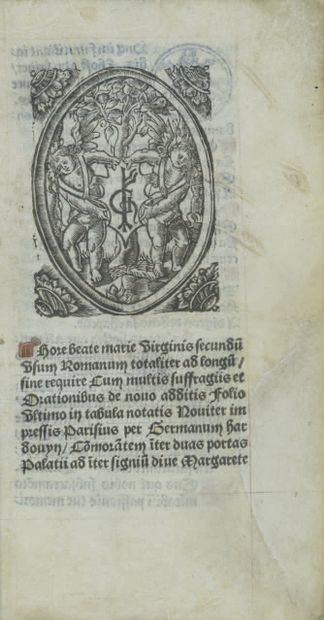 Hore beate marie Virginis secundū
Vsum Romanum totaliter ad longū /
sine require Cum multis suffragiis et
Orationibus de novo additis Folio
Vltimo in tabula notatis Noviter im
pressis Parisius per Germanum har
douyn / Cōmorātem īter duas portas
Palatii ad īter signiū dive Margarete